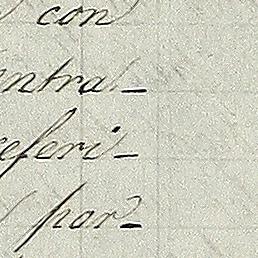 con
ntral-
eferi-
por-